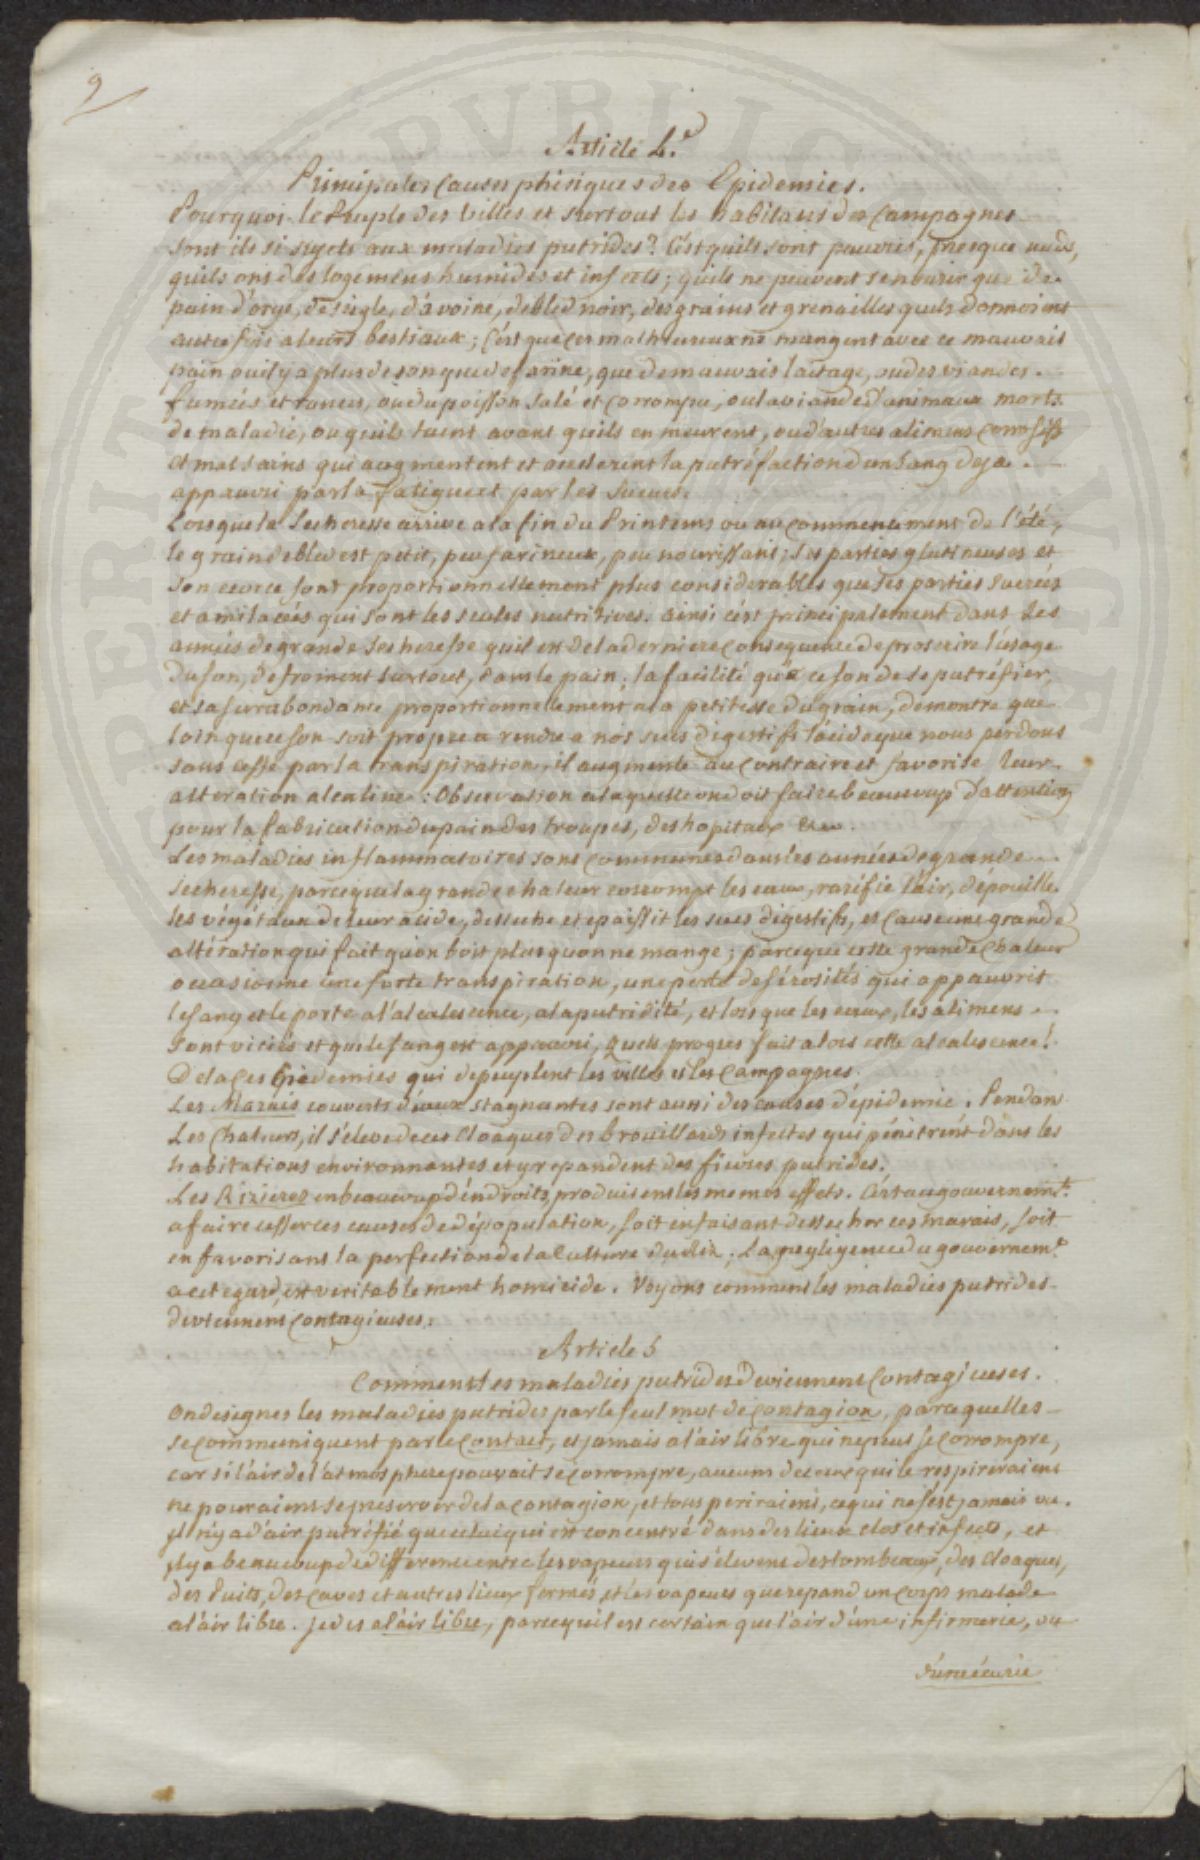 9
Article 4.e
Principales Causes phisiques des Epidemies.
Pourquoi le Peuple des Villes et surtout les habitans des Campagnes
sont ils si sujets aux maladies putrides? C'est quils sont pauvres, presque nuds,
quils ont des logemens humides et infects; quils ne peuvent se nourir que de
pain d'orge, de seigle, d'avoine, de bled noir, des grains et grenailles quils donnoient
autrefois a leurs bestiaux; C'est que ces malheureux ne mangent avec ce mauvais
pain ou il y a plus de son que de farine, que de mauvais laitage, ou des viandes
fumées et rances, ou du poisson salé et corrompu, ou la viande d'animaux morts
de maladie, ou quils tuent avant quils en meurent, ou d'autres alimens corrosifs
et mal sains qui augmentent et accelerent la putréfaction d'un sang deja
appauvri par la fatigue et par les sueurs.
Lorsque la secheresse arrive a la fin du Printems ou au commencement de l'été,
le grain de bled est petit, peu farineux, peu nourissant; ses parties glutineuses et
son ecorce sont proportionnellement plus considerables que ses parties sucrées
et amilacées qui sont les seules nutritives. ainsi c'est principalement dans les
années de grande secheresse quil est de la derniere consequence de proscrire l'usage
du son, de froment surtout, dans le pain; la facilité qu'a ce son de se putréfier,
et sa surabondance proportionnellement a la petitesse du grain, démontre que
loin que ce son soit propre a rendre a nos sucs digestifs l'acide que nous perdons
sans cesse par la transpiration, il augmente au contraire et favorise leur
alteration alcaline: Observation a laquelle on doit faire beaucoup d'attention
pour la fabrication du pain des troupes, des hopitaux &a.
Les maladies inflammatoires sont communes dans les années de grande
secheresse, parceque la grande chaleur corrompt les eaux, raréfie l'air, dépouille
les végétaux de leur acide, desseche et epaissit les sucs digestifs, et cause une grande
altération qui fait qu'on boit plus quon ne mange; parceque cette grande chaleur
occasionne une forte transpiration, une perte de sérosités qui appauvrit
le sang et le porte a l'alcalescence, a la putridité, et lors que les eaux, les alimens
sont viciés et que le sang est appauvri, quels progres fait alors cette alcalescence!
De la ces Epidemies qui depeuplent les villes et les Campagnes.
Les Marais couverts d'eaux stagnantes sont aussi des causes d'épidemie. Pendan
Les Chaleurs, il s'éleve de ces Cloaques des brouillards infectes qui pénétrent dans les
habitations environnantes et y repandent des fievres putrides.
Les Rizieres en beaucoup d'endroits, produisent les memes effets. C'est au gouvernemt.
a faire cesser ces causes de dépopulation, soit en faisant dessecher ces marais, soit
en favorisant la perfection de la Culture du Riz. La négligence du gouvernemt.
a cet egard, est veritablement homicide. Voyons comment les maladies putrides
deviennent Contagieuses.
Article 5
Comment les maladies putrides deviennent Contagieuses.
On designes les maladies putrides par le seul mot de Contagion, parcequelles
se communiquent par le Contact, et jamais a l'air libre qui ne peut se corrompre,
car si l'air de l'atmosphere pouvait se corrompre, aucuns de ceux qui le respireraient
ne pouraient se preserver de la contagion, et tous periraient, ce qui ne s'est jamais vu.
Il n'y a d'air putréfié que celui qui est concentré dans des lieux clos et infects, et
il y a beaucoup de difference entre les vapeurs qui s'élevent des tombeaux, des Cloaques,
des Puits, des caves et autres lieux fermés, et les vapeurs que repand un corps malade
a l'air libre. Je dis a l'air libre, parcequil est certain que l'air d'une infirmerie, ou
d'une écurie